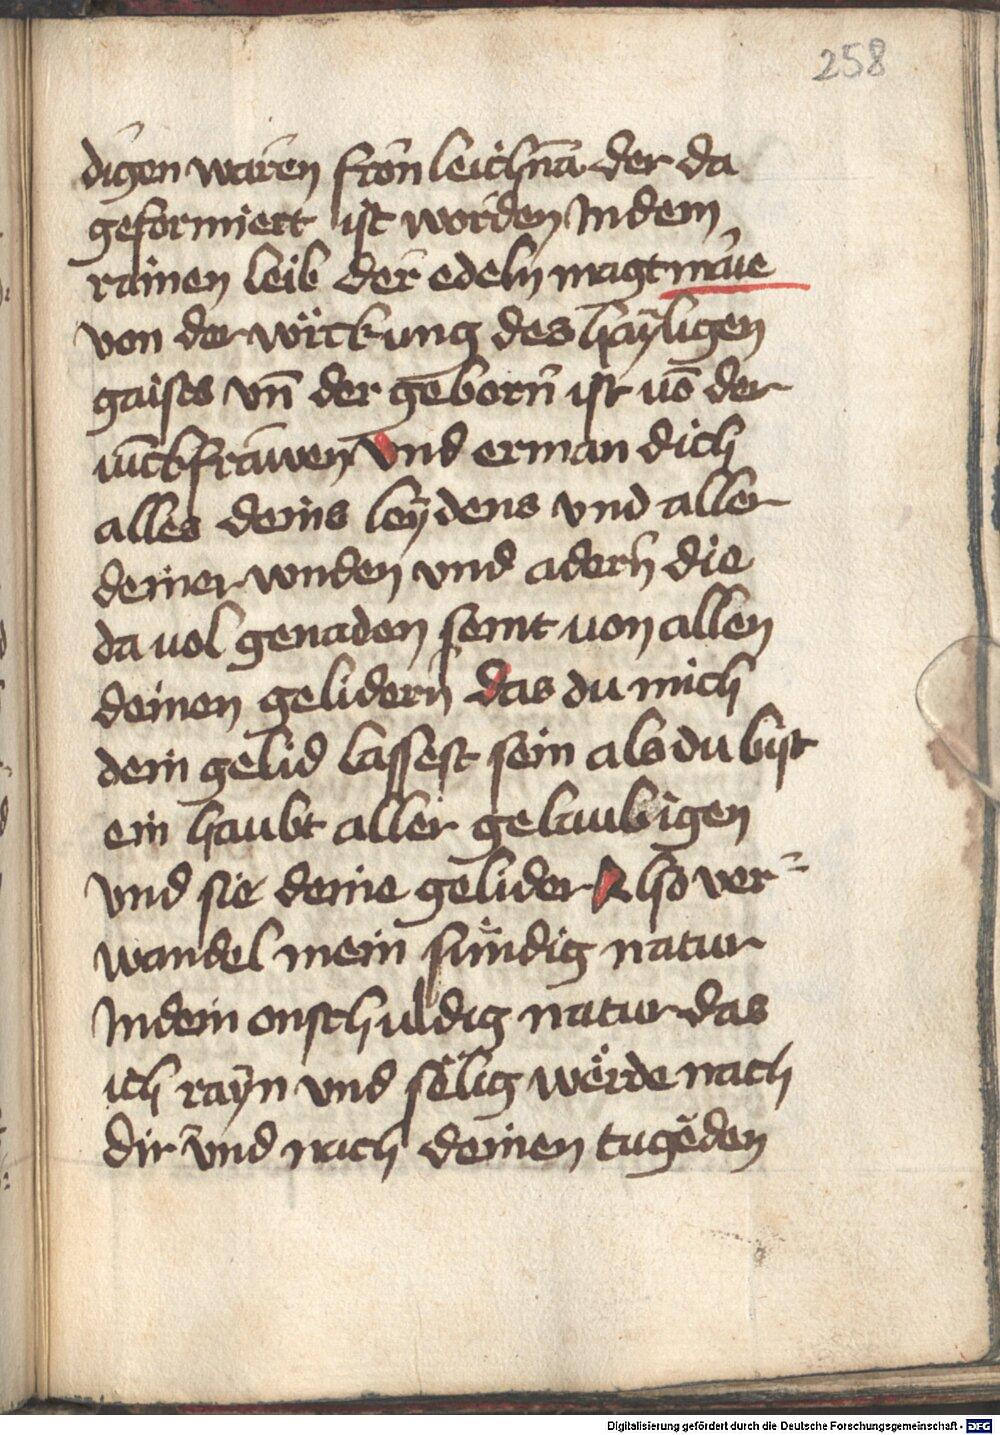 258
digen waren fron leichnā der da
geformiert ist worden Jn dem
rainen leib der edeln magt marie
von der wörckung des hayligen
gaists vn̄ der geborn ist uō der
iūckfrawen Vnd erman dich
alles deins leydens vnd aller
deiner wnden vnd adern die
da vol genaden semt uon allen
deinen gelidern das du mich
dein gelid lassest sein als du bist
ein haubt aller gelaubigen
vnd sie deine gelider Also ver
wandel mein sündig natur
Jn dein onschuldig natur das
ich rayn vnd sëlig wërde nach
dir vnd nach deinen tugēden
Digitalisierung gefördert durch die Deutsche Forschungsgemeinschaft - DFG